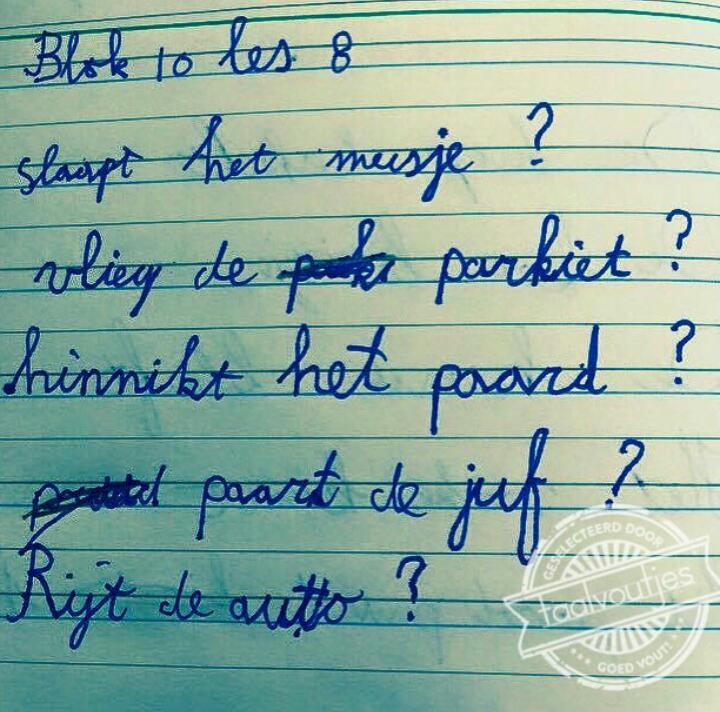 Blok 10 les 8
slaapt het meisje ?
vlieg de parkiet ?
hinnikt het paard ?
paart de juf ?
Rijt de autto ?
GESELECTEERD DOOR
taalvoutjes
GOED VOUT!